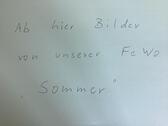 Ab hier Bilder
von unserer FeWo
"Sommer"